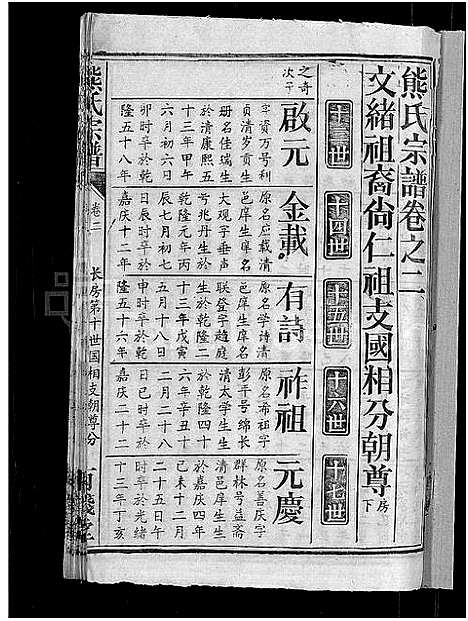 熊氏宗譜卷之二
文緒祖裔尚仁祖支國相分朝尊房下
十三世
十四世
十五世
十六世
十七世
之奇
次子
啟元
字資万号利
貞清岁贡生
册名佳瑞生
於清康熙五
十三年甲午
六月初六日
卯时卒於乾
隆五十八年
金載
原名应载清
邑庠生庠名
大观字垂声
号兆丹生於
乾隆元年丙
辰七月初七
日辰时卒於
嘉庆十二年
有詩
原名学诗清
邑庠生庠名
联登字趋庭
生於乾隆二
十三年戊寅
五月十八日
申时卒於乾
隆五十六年
祚祖
原名希祖字
彭平号绵长
清太学生生
於乾隆四十
六年辛丑十
二月二十八
日巳时卒於
嘉庆二十二
元慶
原名善庆字
群林号益斋
清邑庠生生
於嘉庆四年
己未十二月
二十五日午
时卒於光绪
十三年丁亥
熊氏宗譜
卷二
长房第十世国相支朝尊分